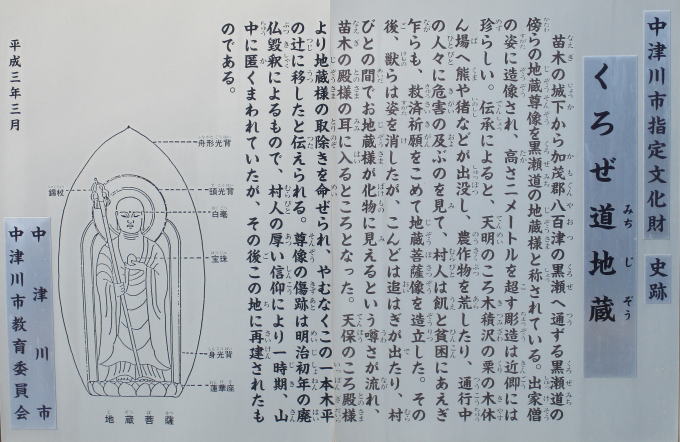 中津川市指定文化財 史跡
くろぜ道地蔵
みち じ ぞう
苗木の城下から加茂郡八百津の黒瀬へ通ずる黒瀬道の
傍らの地蔵尊像を黒瀬道の地蔵様と称されている。出家僧
の姿に造像され、高さ二メートルを超す彫造は近郷には
珍らしい。伝承によると、天明のころ木積沢の栗の木休
ん場へ熊や猪などが出没し、農作物を荒したり、通行中
の人々に危害の及ぶのを見て、村人は飢と貧困にあえぎ
乍らも、救済祈願をこめて地蔵菩薩像を造立した。その
後、獣らは姿を消したが、こんどは追はぎが出たり、村
びとの間でお地蔵様が化物に見えるという噂さが流れ、
苗木の殿様の耳に入るところとなった。天保のころ殿様
より地蔵様の取除きを命ぜられ、やむなくこの一本木平
の辻に移したと伝えられる。尊像の傷跡は明治初年の廃
仏毀釈によるもので、村人の厚い信仰により一時期、山
中に匿くまわれていたが、その後この地に再建されたも
のである。
舟形光背
頭光背
白毫
宝珠
身光背
蓮華座
錫杖
地蔵菩薩
平成三年三月
中津川市
中津川市教育委員会